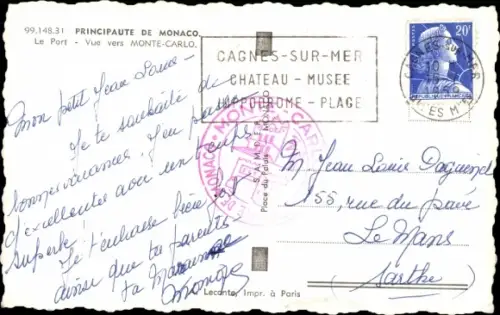 99.148.31 PRINCIPAUTE DE MONACO.
Le Port - Vue vers MONTE-CARLO.
Mon petit Jean Louis -
Je te souhaite de
bonnes vacances. J'en passe
d'excellentes avec un temps
superbe!
Je t'embrasse bien fort
ainsi que tes parents.
Ta Marraine
Monique
CAGNES-SUR-MER
CHATEAU - MUSEE
HIPPODROME - PLAGE
20F
MONTE-CARLO
DE MONACO
Place du Palais - MONACO
M. Jean Louis Daguenel
155, rue du pavé
Le Mans
(Sarthe)
Leconte, Impr. à Paris